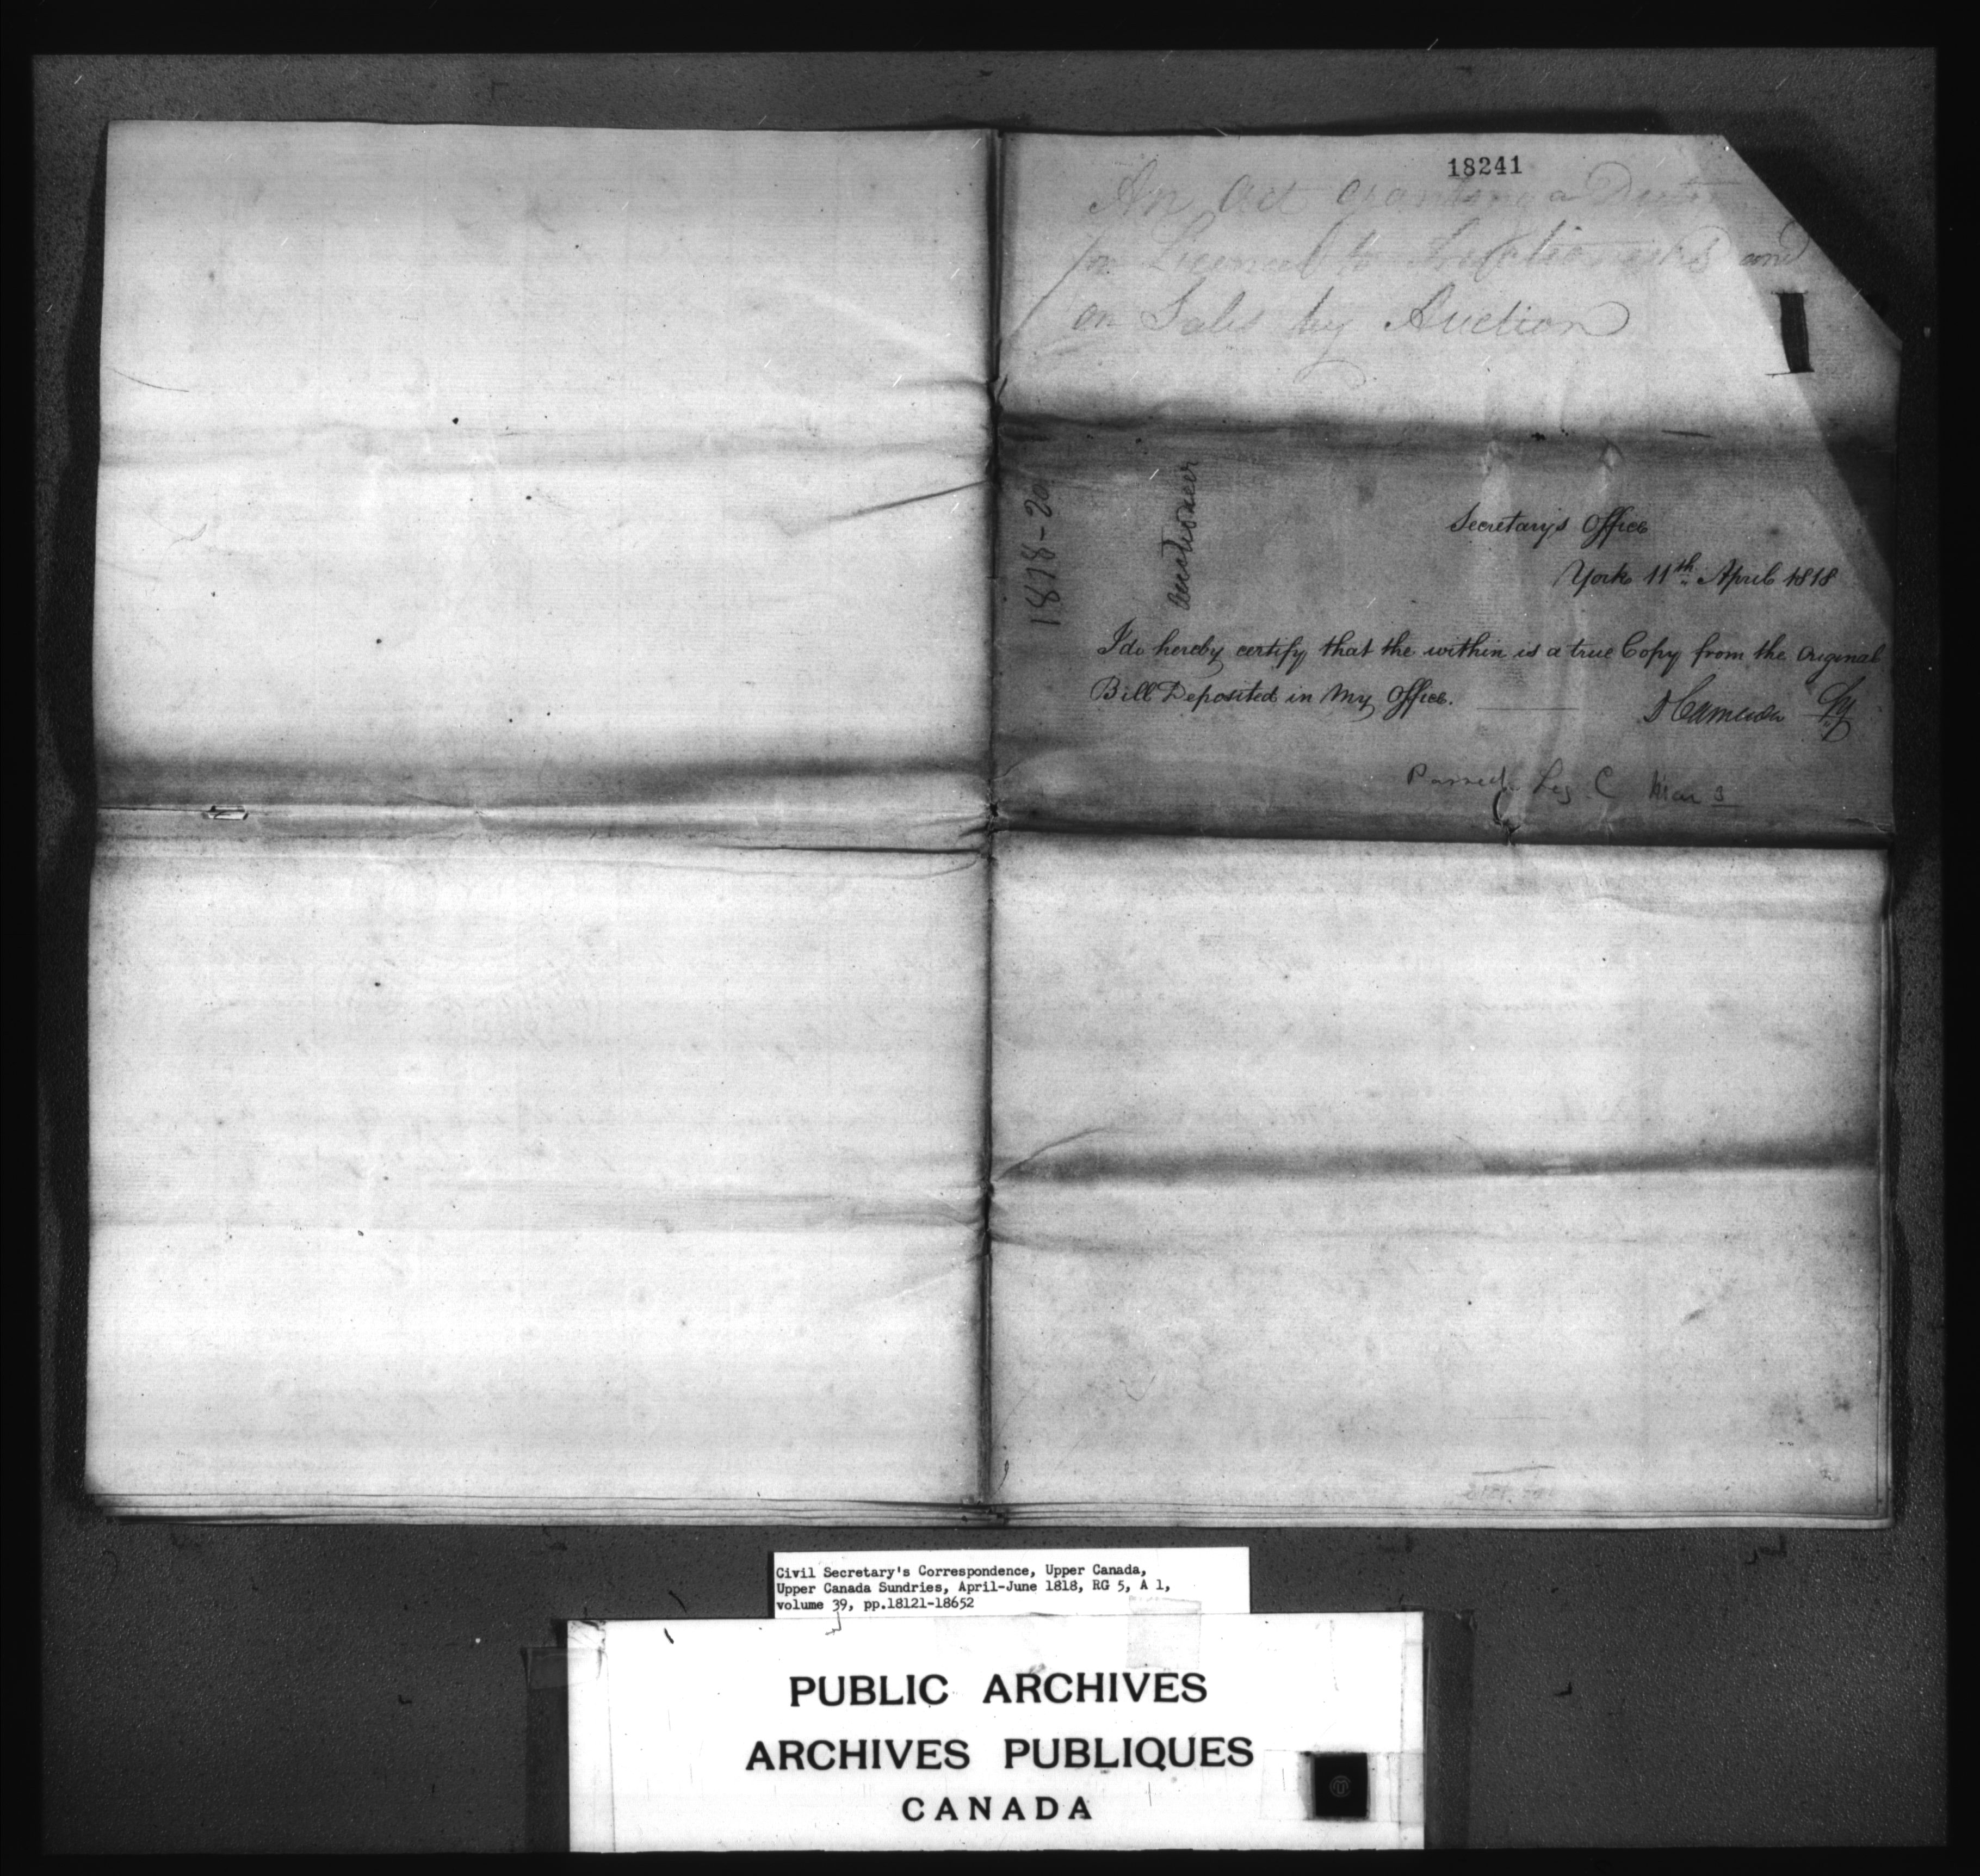 18241
An Act granting a Duty
on Licences to Auctioneers and
on Sales by Auction
1818-20
auctioneer
Secretary's Office
York 11th April 1818
I do hereby certify that the within is a true Copy from the Original
Bill Deposited in My Office.
DCameron Sy
Passed Leg. C Mar 3
Civil Secretary's Correspondence, Upper Canada,
Upper Canada Sundries, April-June 1818, RG 5, A 1,
volume 39, pp.18121-18652
PUBLIC ARCHIVES
ARCHIVES PUBLIQUES
CANADA